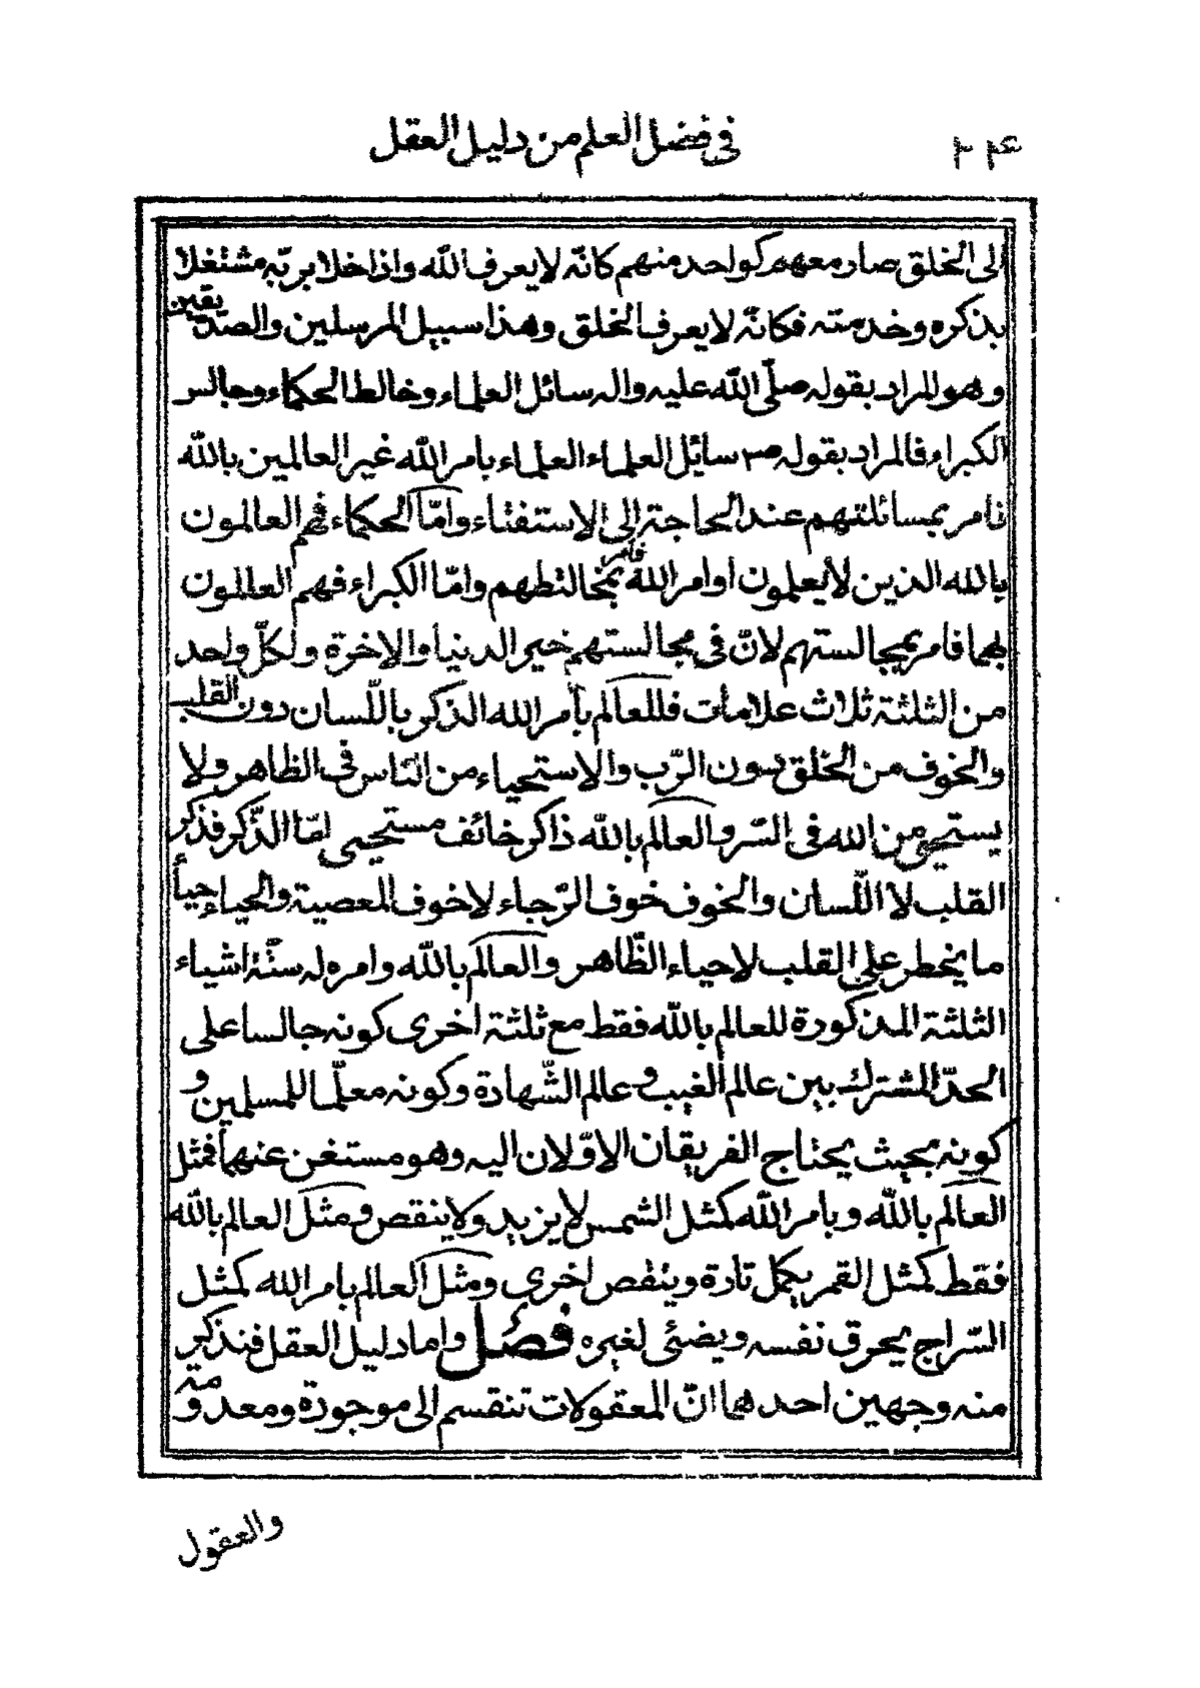 في فضل العلم من دليل العقل
الى الخلق صار معهم كواحد منهم كانّه لا يعرف الله واذا خلا بربّه مشتغلا
بذكره وخدمته فكانّه لا يعرف الخلق وهذا سبيل المرسلين والصدّيقين
وهو المراد بقوله صلّى الله عليه واله سائل العلماء وخالط الحكماء وجالس
الكبراء فالمراد بقوله ص سائل العلماء العلماء بامر الله غير العالمين بالله
فامر بمسائلتهم عند الحاجة الى الاستفتاء وامّا الحكماء فهم العالمون
بالله الذين لا يعلمون اوامر الله فامر بمخالطتهم وامّا الكبراء فهم العالمون
بهما فامر بمجالستهم لانّ فى مجالستهم خير الدنيا والاخرة ولكلّ واحد
من الثلثة ثلاث علامات فللعالم بأمر الله الذكر باللّسان دون القلب
والخوف من الخلق دون الرّب والاستحياء من النّاس فى الظاهر ولا
يستحيى من الله فى السّر والعالم بالله ذاكر خائف مستحيى امّا الذّكر فذكر
القلب لا اللّسان والخوف خوف الرّجاء لا خوف المعصية والحياء حياء
ما يخطر على القلب لا حياء الظّاهر والعالم بالله وامره له ستّة اشياء
الثلثة المذكورة للعالم بالله فقط مع ثلثة اخرى كونه جالسا على
الحدّ المشترك بين عالم الغيب و عالم الشّهادة وكونه معلّما للمسلمين و
كونه بحيث يحتاج الفريقان الاوّلان اليه وهو مستغن عنهما فمثل
العالم بالله وبامر الله كمثل الشمس لا يزيد ولا ينقص ومثل العالم بالله
فقط كمثل القمر يكمل تارة وينقص اخرى ومثل العالم بامر الله كمثل
السّراج يحرق نفسه ويضئى لغيره فصل واما دليل العقل فنذكر
منه وجهين احدهما انّ المعقولات تنقسم الى موجودة ومعدومة
والعقول